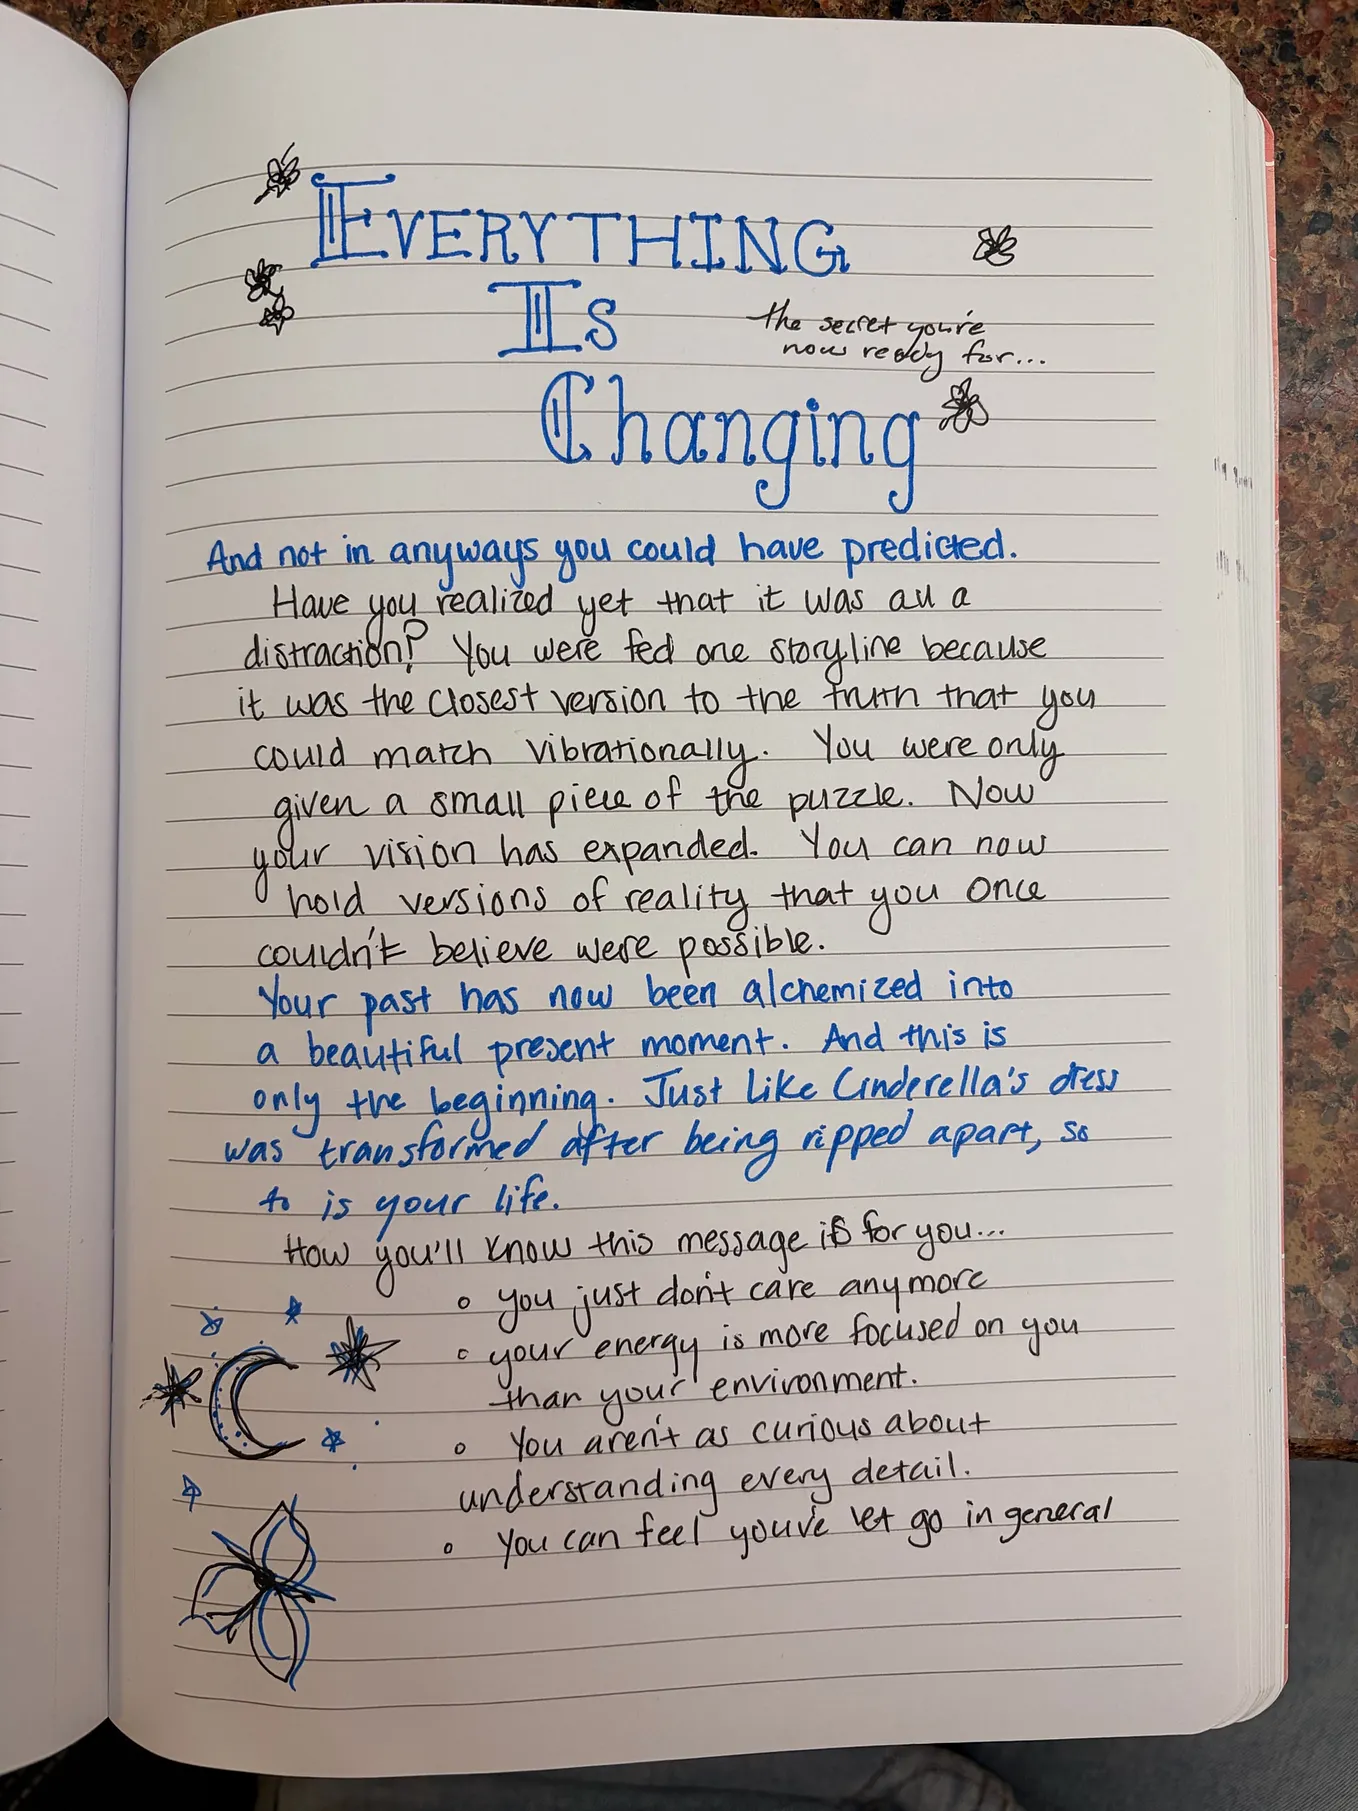 EVERYTHING
IS
the secret you're
now ready for...
Changing
And not in anyways you could have predicted.
Have you realized yet that it was all a
distraction? You were fed one storyline because
it was the closest version to the truth that you
could match vibrationally. You were only
given a small piece of the puzzle. Now
your vision has expanded. You can now
hold versions of reality that you once
couldn't believe were possible.
Your past has now been alchemized into
a beautiful present moment. And this is
only the beginning. Just like Cinderella's dress
was transformed after being ripped apart, so
to is your life.
How you'll know this message is for you...
o you just don't care anymore
o your energy is more focused on you
than your environment.
o You aren't as curious about
understanding every detail.
o You can feel you've let go in general